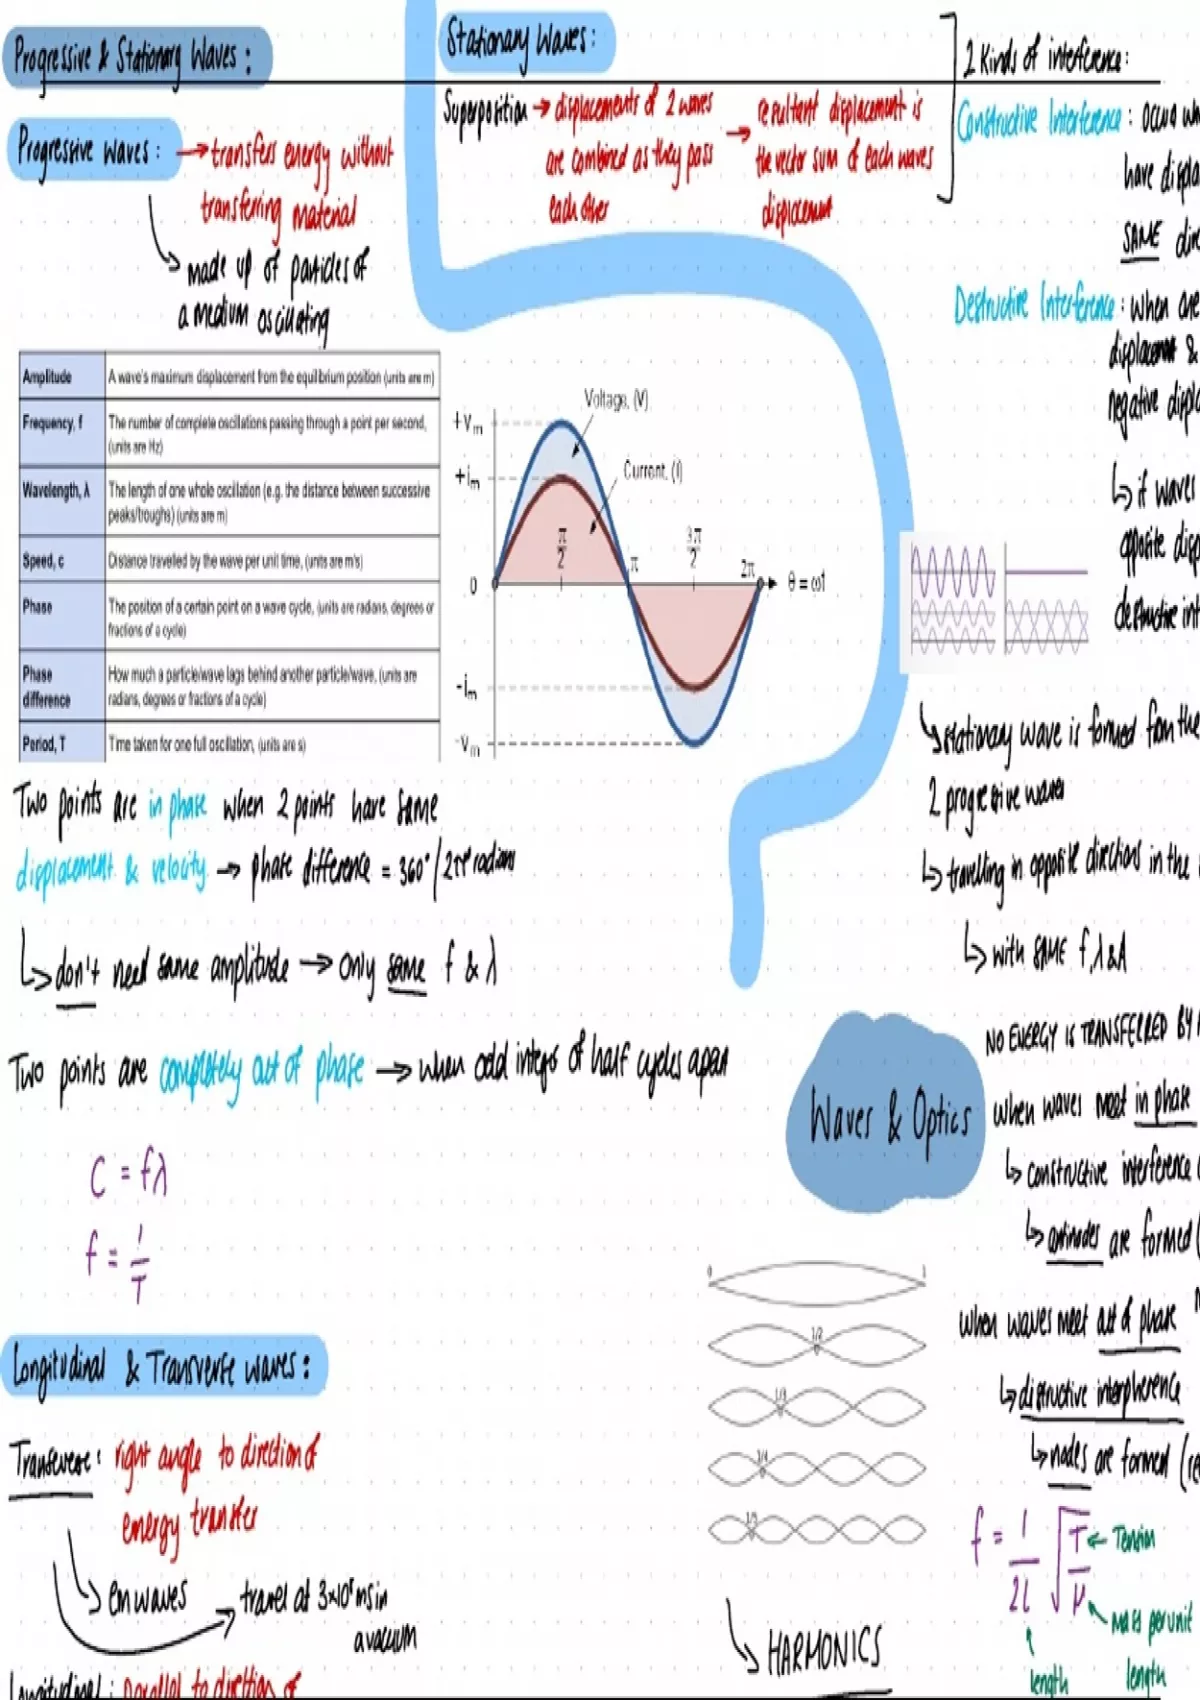 Progressive & Stationary Waves :
Progressive waves : → transfers energy without
transferring material
↳ made up of particles of
a medium oscillating
Amplitude A wave's maximum displacement from the equilibrium position (units are m)
Frequency, f The number of complete oscillations passing through a point per second,
(units are Hz)
Wavelength, λ The length of one whole oscillation (e.g. the distance between successive
peaks/troughs) (units are m)
Speed, c Distance travelled by the wave per unit time, (units are m/s)
Phase The position of a certain point on a wave cycle, (units are radians, degrees or
fractions of a cycle)
Phase
difference How much a particle/wave lags behind another particle/wave, (units are
radians, degrees or fractions of a cycle)
Period, T Time taken for one full oscillation, (units are s)
Two points are in phase when 2 points have same
displacement & velocity → phase difference = 360° / 2πᶜ radians
↳ don't need same amplitude → only same f & λ
Two points are completely out of phase → when odd integs of half cycles apart
C = fλ
f = 1
T
Longitudinal & Transverse waves :
Transverse : right angle to direction of
energy transfer
↳ em waves → travel at 3×10⁸ ms in
a vacuum
Longitudinal : parallel to direction of
Stationary Waves :
Superposition → displacements of 2 waves
are combined as they pass
each other
→ resultant displacement is
the vector sum of each waves
displacement
+Vm
+im
0
-im
-Vm
Voltage, (V)
Current, (I)
π
2
π
3π
2
2π
θ = ωt
2 Kinds of interference :
Constructive Interference : occurs
have
SAME
Destructive Interference : when one
displacement &
negative
↳ if waves
opposite
destructive
↳ stationary wave is formed from the
2 progressive waves
↳ travelling in opposite directions in the
↳ with SAME f, λ & A
NO ENERGY IS TRANSFERRED BY
Waves & Optics
when waves meet in phase
↳ constructive interference
↳ antinodes are formed (
when waves meet out of phase
↳ distructive interpherence
↳ nodes are formed (
0 1
1/2
1/3
1/4
1/5
↳ HARMONICS
f = 1 √ T ← Tension
2l μ ← mass per unit
length
length